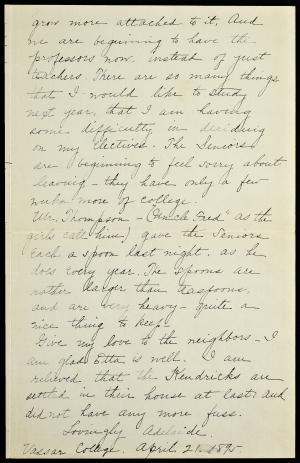 grow more attached to it. And
we are beginning to have the
professors now, instead of just
teachers. There are so many things
that I would like to study
next year, that I am having
some difficulty in deciding
on my electives. The Seniors
are beginning to feel sorry about
leaving - they have only a few
weeks more of college.
Mr. Thompson - ("Uncle Fred" as the
girls call him) gave the Seniors
each a spoon last night, as he
does every year. The spoons are
rather larger than teaspoons,
and are very heavy - quite a
nice thing to keep.
Give my love to the neighbors - I
am glad Etta is well. I am
relieved, that the Kendricks are
settled in their house at last, and
did not have any more fuss.
Lovingly Adelaide.
Vassar College. April 21, 1895.